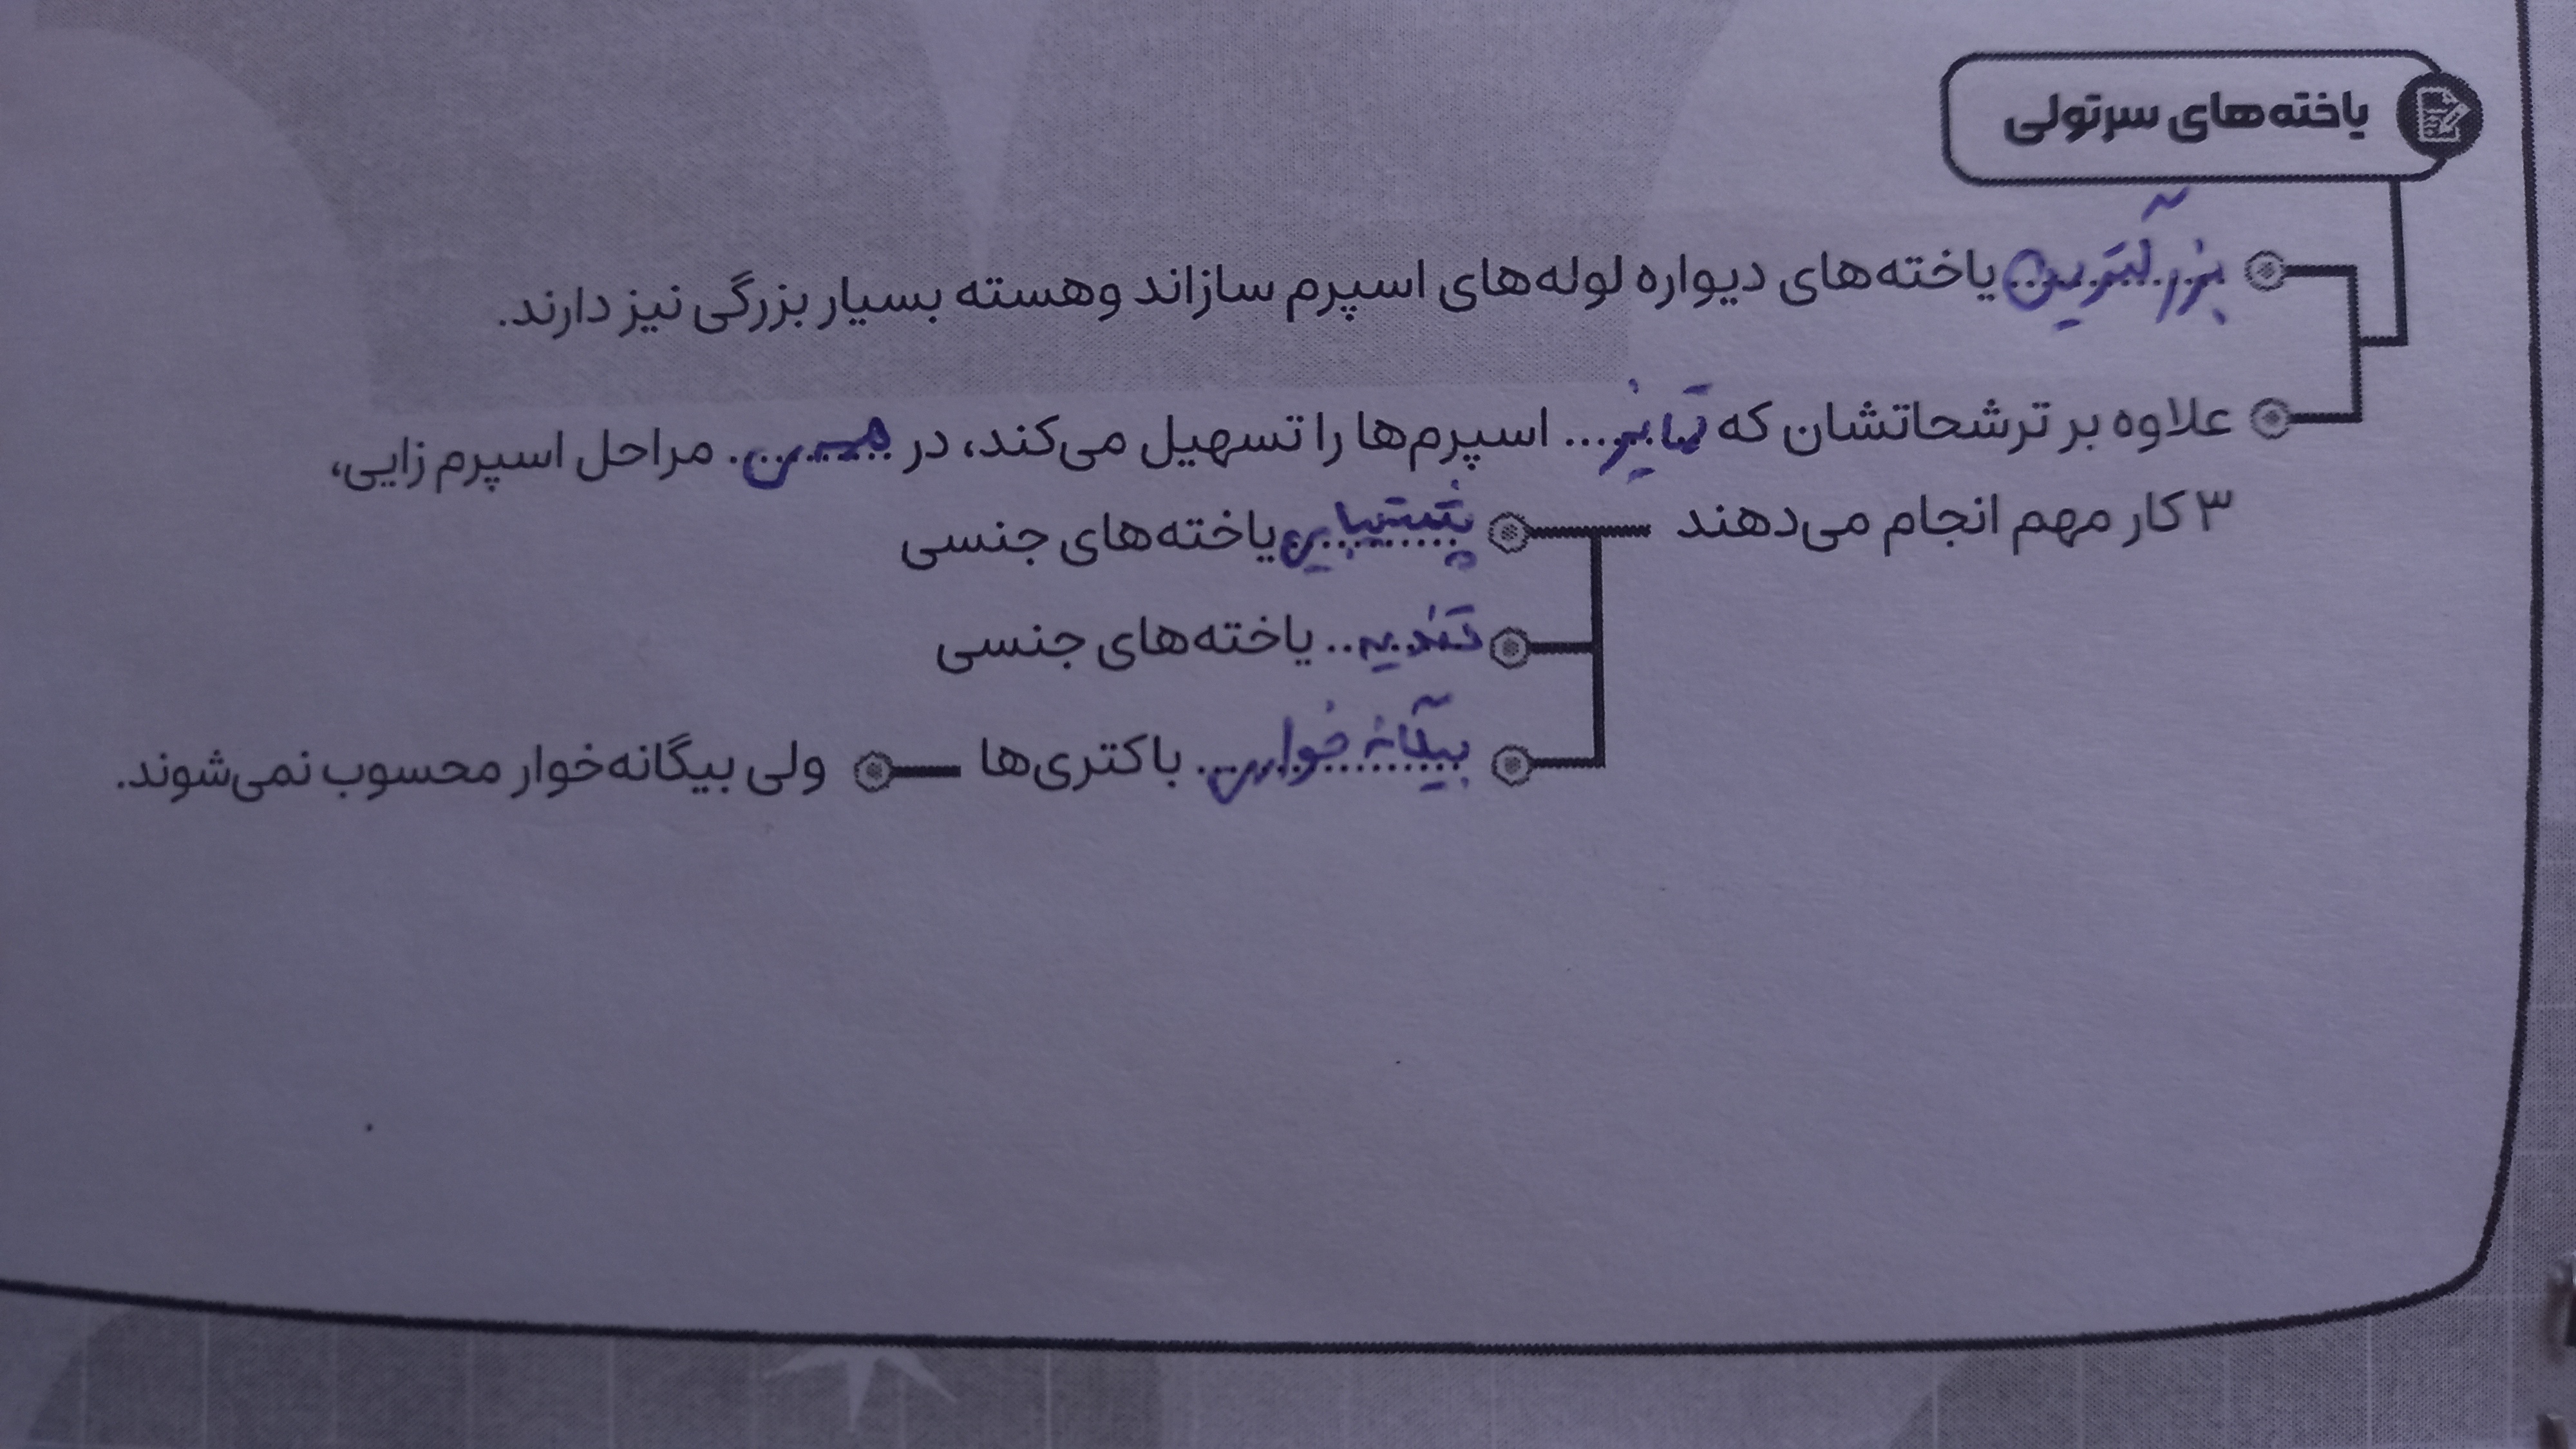 یاخته‌های سرتولی
بزرگترین یاخته‌های دیواره لوله‌های اسپرم سازاند وهسته بسیار بزرگی نیز دارند.
علاوه بر ترشحاتشان که تمایز... اسپرم‌ها را تسهیل می‌کند، در همه‌ی. مراحل اسپرم زایی،
۳ کار مهم انجام می‌دهند
پشتیبانی یاخته‌های جنسی
تغذیه.. یاخته‌های جنسی
بیگانه خواری. باکتری‌ها
ولی بیگانه‌خوار محسوب نمی‌شوند.